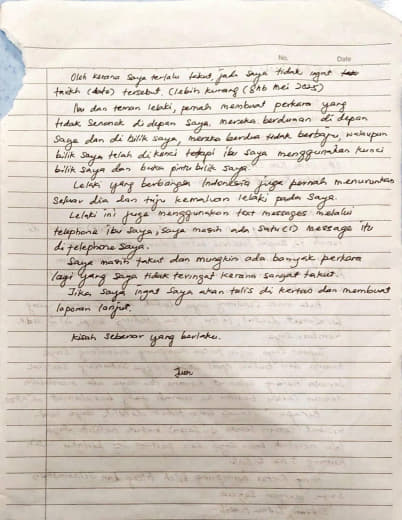 No. Date
Oleh kerana saya terlalu takut, jadi saya tidak ingat
tarikh (date) tersebut. (lebih kurang (8hb Mei 2025)
Ibu dan teman lelaki, pernah membuat perkara yang
tidak senonok di depan saya. mereka berduaan di depan
saya dan di bilik saya, mereka berdua tidak berbaju, walaupun
bilik saya telah di kunci tetapi ibu saya menggunakan kunci
bilik saya dan buka pintu bilik saya.
Lelaki yang berbangsa Indonesia juga pernah menurunkan
seluar dia dan tuju kemaluan lelaki pada saya.
Lelaki ini juga menggunakan text messages melalui
telephone ibu saya, saya masih ada satu (1) message itu
di telephone saya.
Saya masih takut dan mungkin ada banyak perkara
lagi yang saya tidak teringat kerana sangat takut.
Jika saya ingat saya akan tulis di kertas dan membuat
laporan lanjut.
Kisah sebenar yang berlaku.